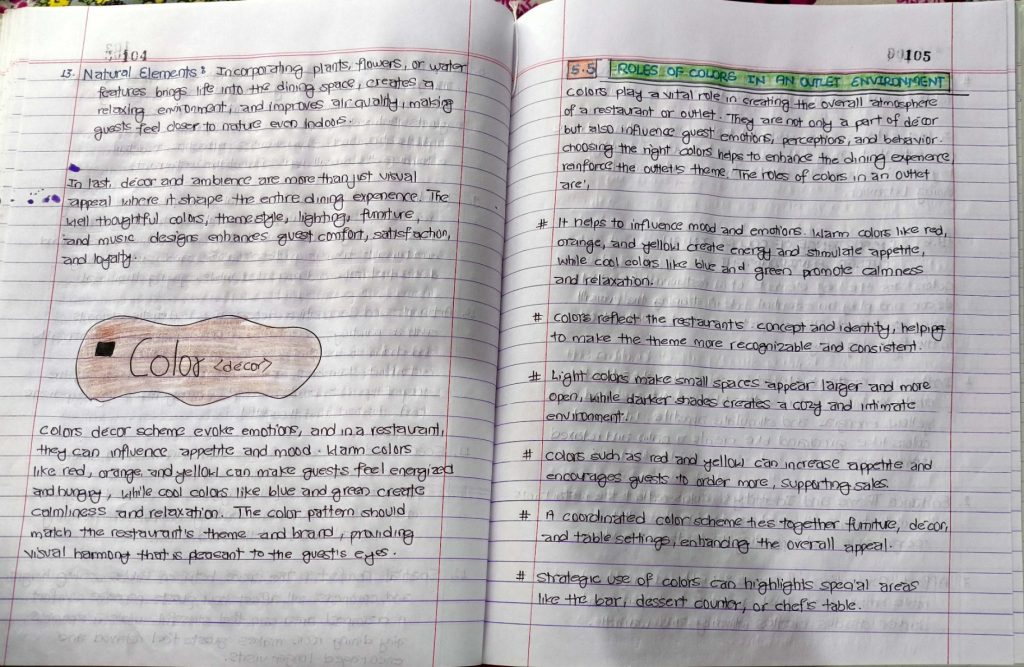 104
13. Natural Elements: Incorporating plants, flowers, or water
features brings life into the dining space, creates a
relaxing environment, and improves air quality, making
guests feel closer to nature even indoors.
In last, decor and ambience are more than just visual
appeal where it shape the entire dining experience. The
well thoughtful colors, theme style, lighting, furniture,
and music designs enhances guest comfort, satisfaction,
and loyalty.
Color <decor>
Colors decor scheme evoke emotions, and in a restaurant,
they can influence appetite and mood. Warm colors
like red, orange, and yellow can make guests feel energized
and hungry, while cool colors like blue and green create
calmliness and relaxation. The color pattern should
match the restaurant's theme and brand, providing
visual harmony that is pleasant to the guest's eyes.
105
5.5 ROLES OF COLORS IN AN OUTLET ENVIRONMENT
Colors play a vital role in creating the overall atmosphere
of a restaurant or outlet. They are not only a part of decor
but also influence guest emotions, perceptions, and behavior.
choosing the right colors helps to enhance the dining experience
reinforce the outlet's theme. The roles of colors in an outlet
are;
# It helps to influence mood and emotions. Warm colors like red,
orange, and yellow create energy and stimulate appetite,
while cool colors like blue and green promote calmness
and relaxation.
# Colors reflect the restaurant's concept and identity, helping
to make the theme more recognizable and consistent.
# Light colors make small spaces appear larger and more
open, while darker shades creates a cozy and intimate
environment.
# colors such as red and yellow can increase appetite and
encourages guests to order more, supporting sales.
# A coordinated color scheme ties together furniture, decor,
and table settings, enhancing the overall appeal.
# Strategic use of colors can highlights special areas
like the bar, dessert counter, or chef's table.